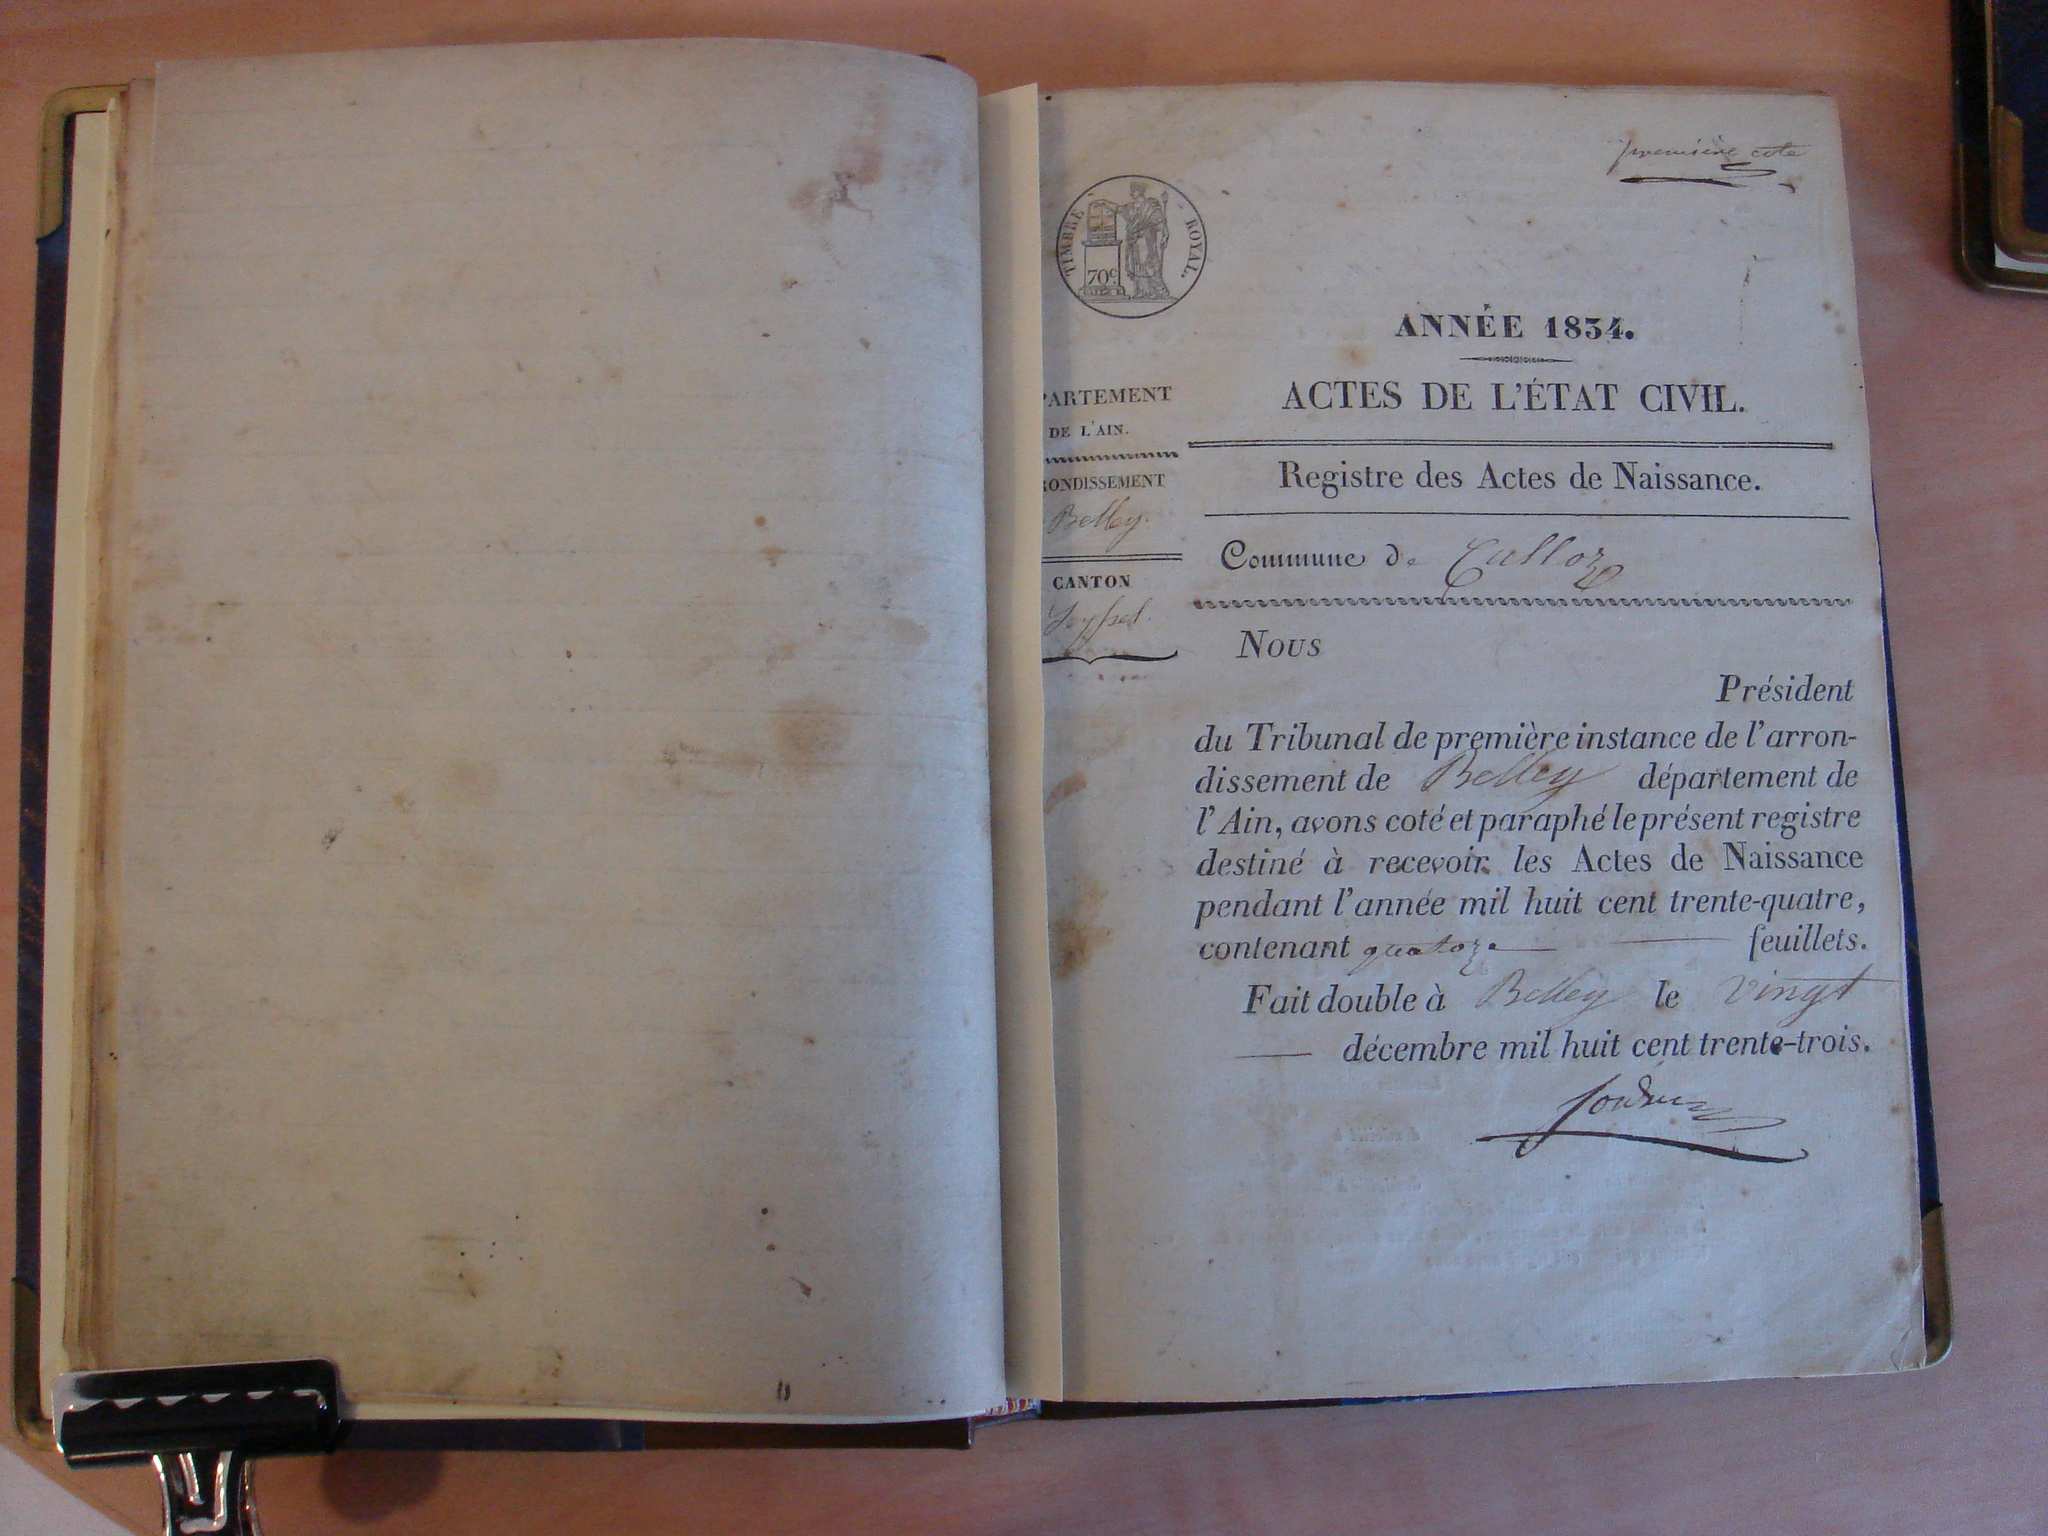 première cote
TIMBRE ROYAL.
70c
ANNÉE 1834.
ACTES DE L'ÉTAT CIVIL.
PARTEMENT
DE L'AIN.
RONDISSEMENT
Belley.
CANTON
Seyssel.
Registre des Actes de Naissance.
Commune de Culloz
Nous
Président
du Tribunal de première instance de l'arron-
dissement de Belley département de
l'Ain, avons coté et paraphé le présent registre
destiné à recevoir les Actes de Naissance
pendant l'année mil huit cent trente-quatre,
contenant quatorze feuillets.
Fait double à Belley le vingt
décembre mil huit cent trente-trois.